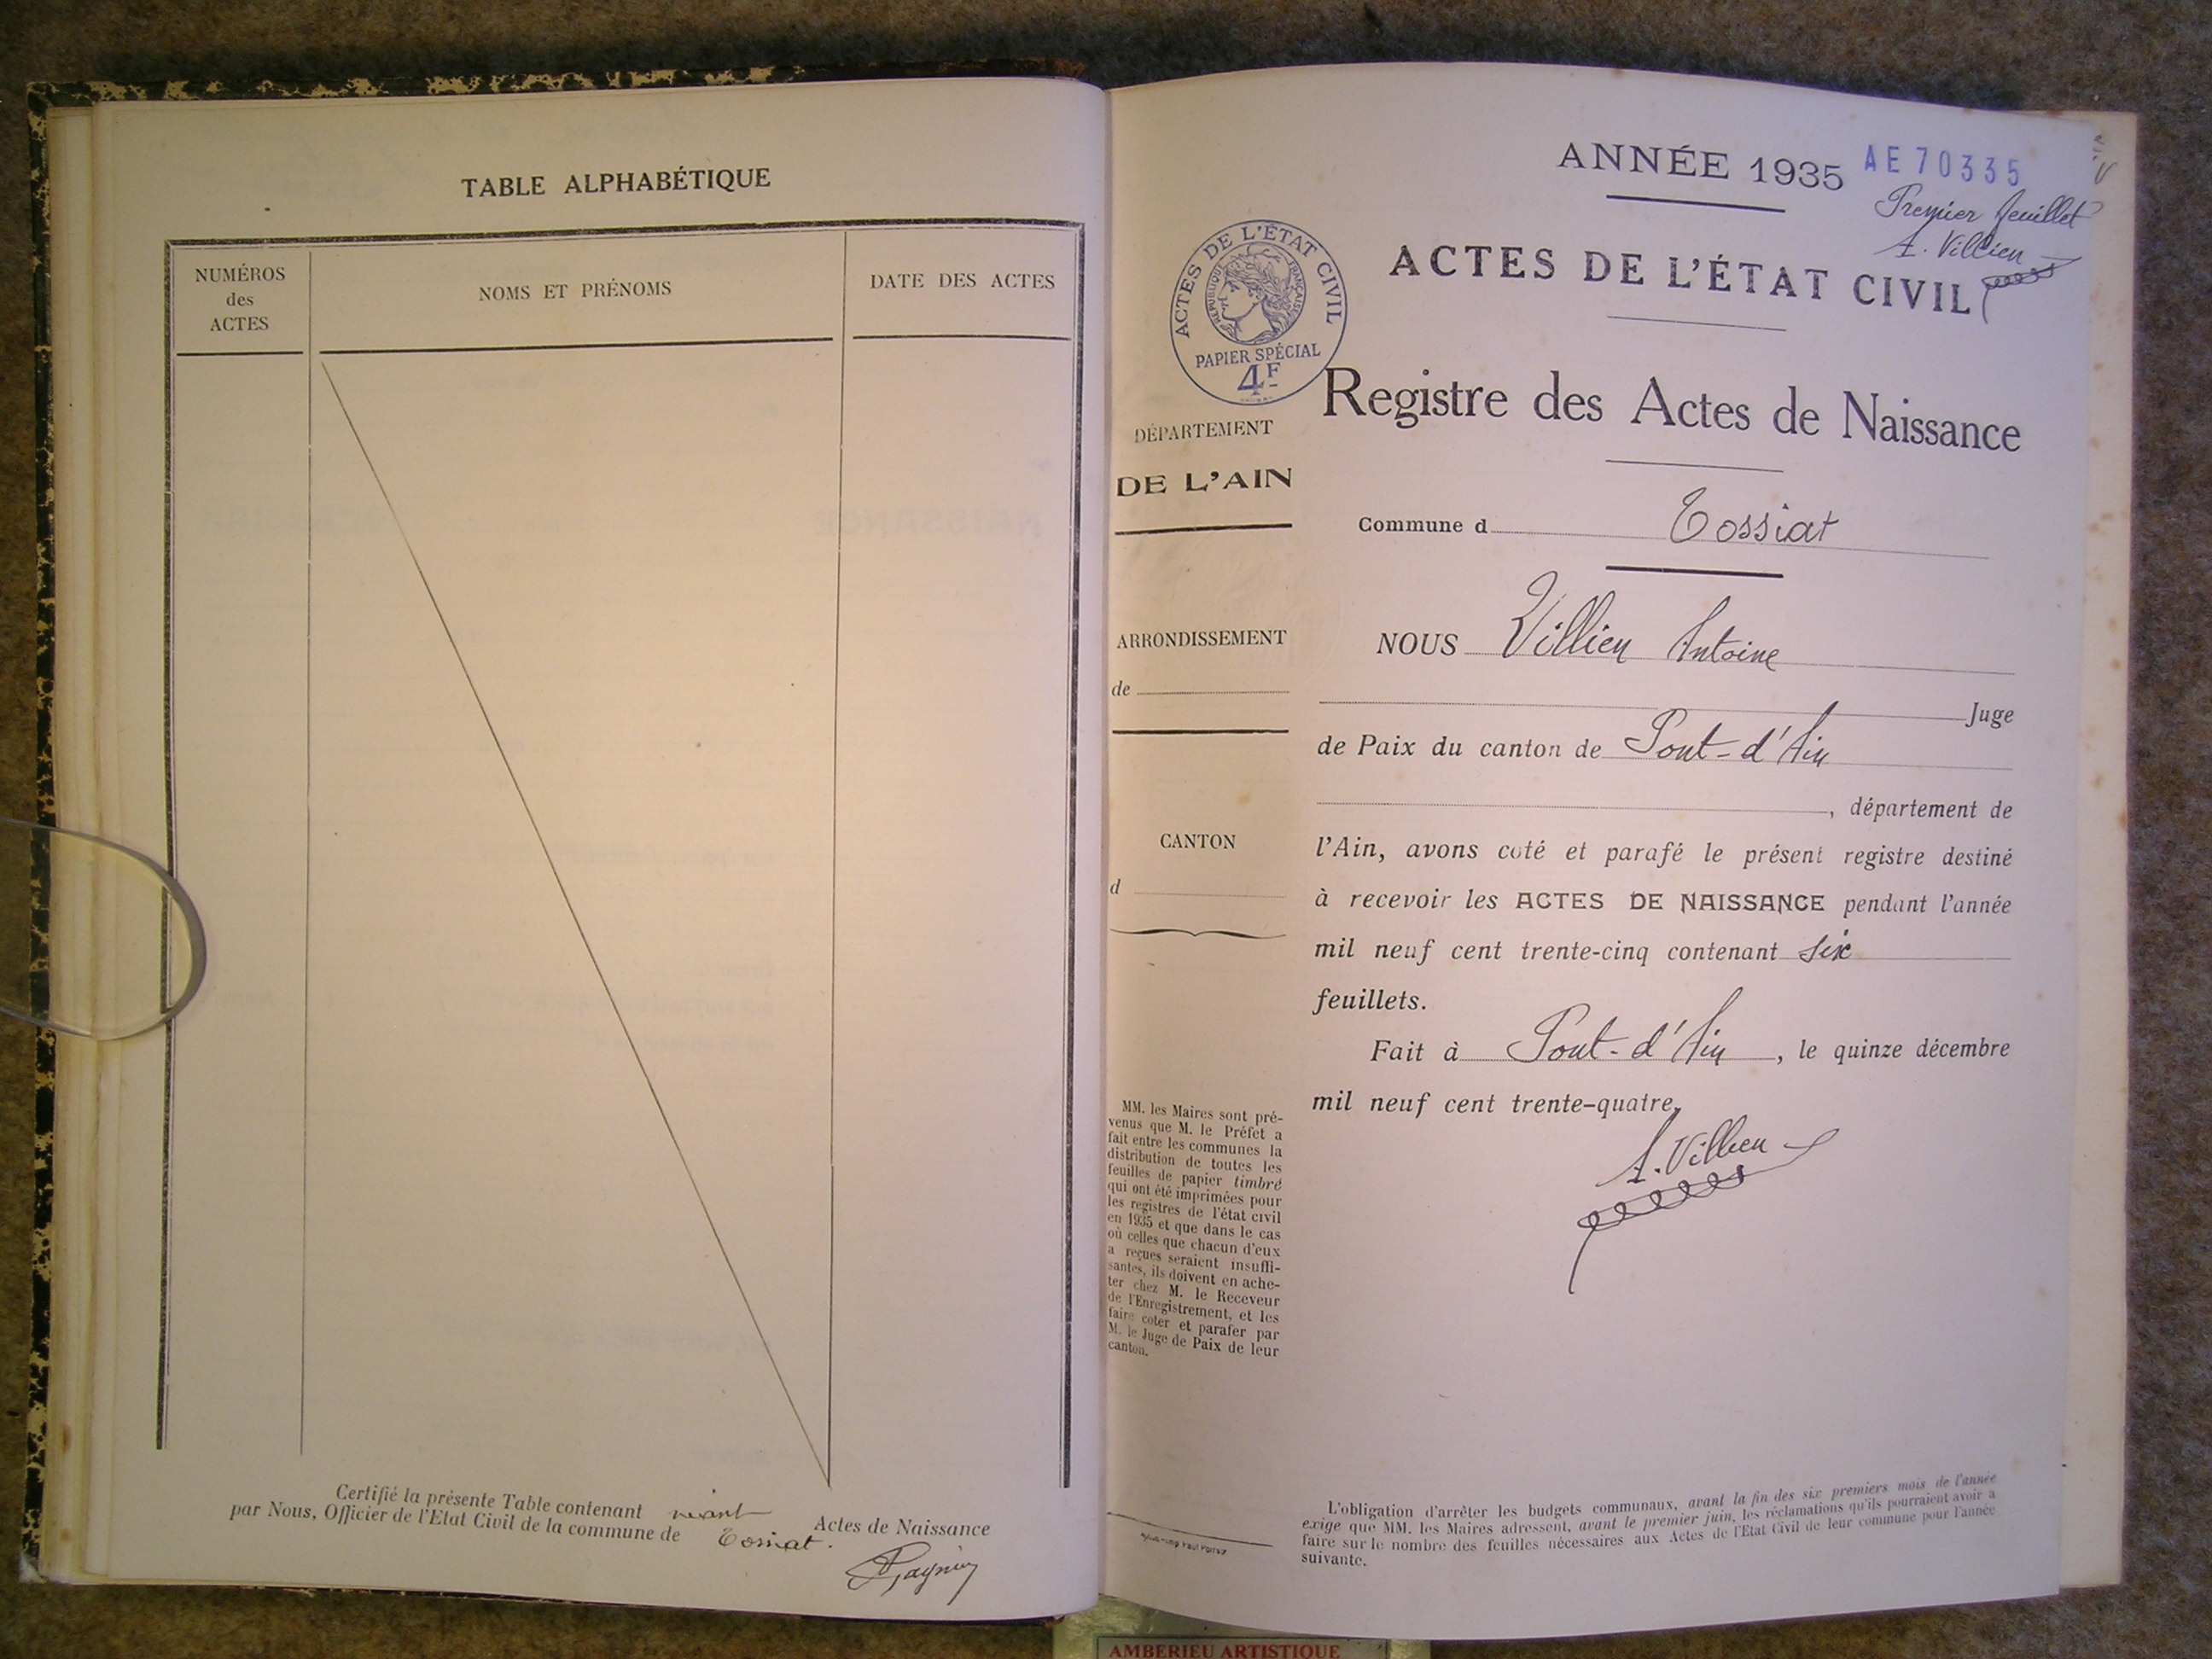 TABLE ALPHABÉTIQUE
NUMÉROS
des
ACTES
NOMS ET PRÉNOMS
DATE DES ACTES
Certifié la présente Table contenant néant Actes de Naissance
par Nous, Officier de l'Etat Civil de la commune de Tossiat.
ANNÉE 1935
AE70335
Premier feuillet
A. Villien
ACTES DE L'ÉTAT CIVIL
ACTES DE L'ÉTAT CIVIL
RÉPUBLIQUE FRANÇAISE
PAPIER SPÉCIAL
4F
Registre des Actes de Naissance
DÉPARTEMENT
DE L'AIN
Commune d Tossiat
ARRONDISSEMENT
de
CANTON
d
NOUS Villien Antoine
Juge
de Paix du canton de Pont-d'Ain
, département de
l'Ain, avons coté et parafé le présent registre destiné
à recevoir les ACTES DE NAISSANCE pendant l'année
mil neuf cent trente-cinq contenant six
feuillets.
Fait à Pont-d'Ain, le quinze décembre
mil neuf cent trente-quatre.
A. Villien
MM. les Maires sont pré-
venus que M. le Préfet a
fait entre les communes la
distribution de toutes les
feuilles de papier timbré
qui ont été imprimées pour
les registres de l'état civil
en 1935 et que dans le cas
où celles que chacun d'eux
a reçues seraient insuffi-
santes, ils doivent en ache-
ter chez M. le Receveur
de l'Enregistrement, et les
faire coter et parafer par
M. le Juge de Paix de leur
canton.
L'obligation d'arrêter les budgets communaux, avant la fin des six premiers mois de l'année
exige que MM. les Maires adressent, avant le premier juin, les réclamations qu'ils pourraient avoir à
faire sur le nombre des feuilles nécessaires aux Actes de l'Etat Civil de leur commune pour l'année
suivante.
AMBERIEU ARTISTIQUE